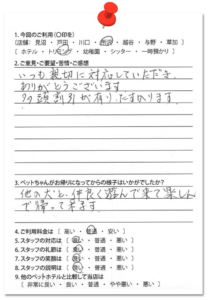 1.今回のご利用(〇印を)
[店舗: 見沼 ・ 戸田 ・ 川口 ・ 所沢 ・ 越谷 ・ 与野 ・ 草加 ]
[ ホテル ・ トリミング ・ 幼稚園 ・ シッター ・ 一時預かり ]
2.ご意見・ご要望・苦情・ご感想
いつも親切に対応していただき、
ありがとうございます
多頭割引が有り、たすかります。
3.ペットちゃんがお帰りになってからの様子はいかがでしたか?
他の犬と、仲良く遊んで来て楽しん
で帰って来ます。
4.ご利用料金は [ 高い ・ 普通 ・ 安い ]
5.スタッフの対応は [ 良い ・ 普通 ・ 悪い ]
6.スタッフの礼節は [ 良い ・ 普通 ・ 悪い ]
7.スタッフの笑顔は [ 良い ・ 普通 ・ 悪い ]
8.スタッフの説明は [ 良い ・ 普通 ・ 悪い ]
9.他のペットホテルと比較して当店は
[ 非常に良い ・ 良い ・ 普通 ・ やや悪い ・ 悪い ]